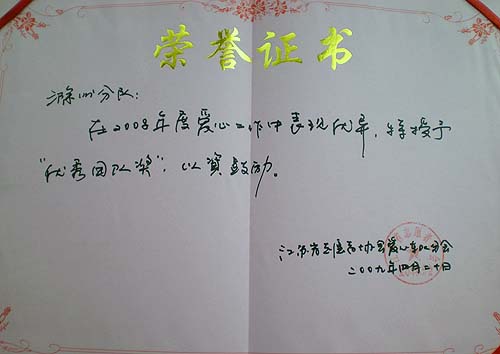 荣誉证书
滁州分队：
在2008年度爱心工作中表现优异，特授予
“优秀团队奖”，以资鼓励。
江苏省志愿者协会爱心车队分会
二00九年四月二十日